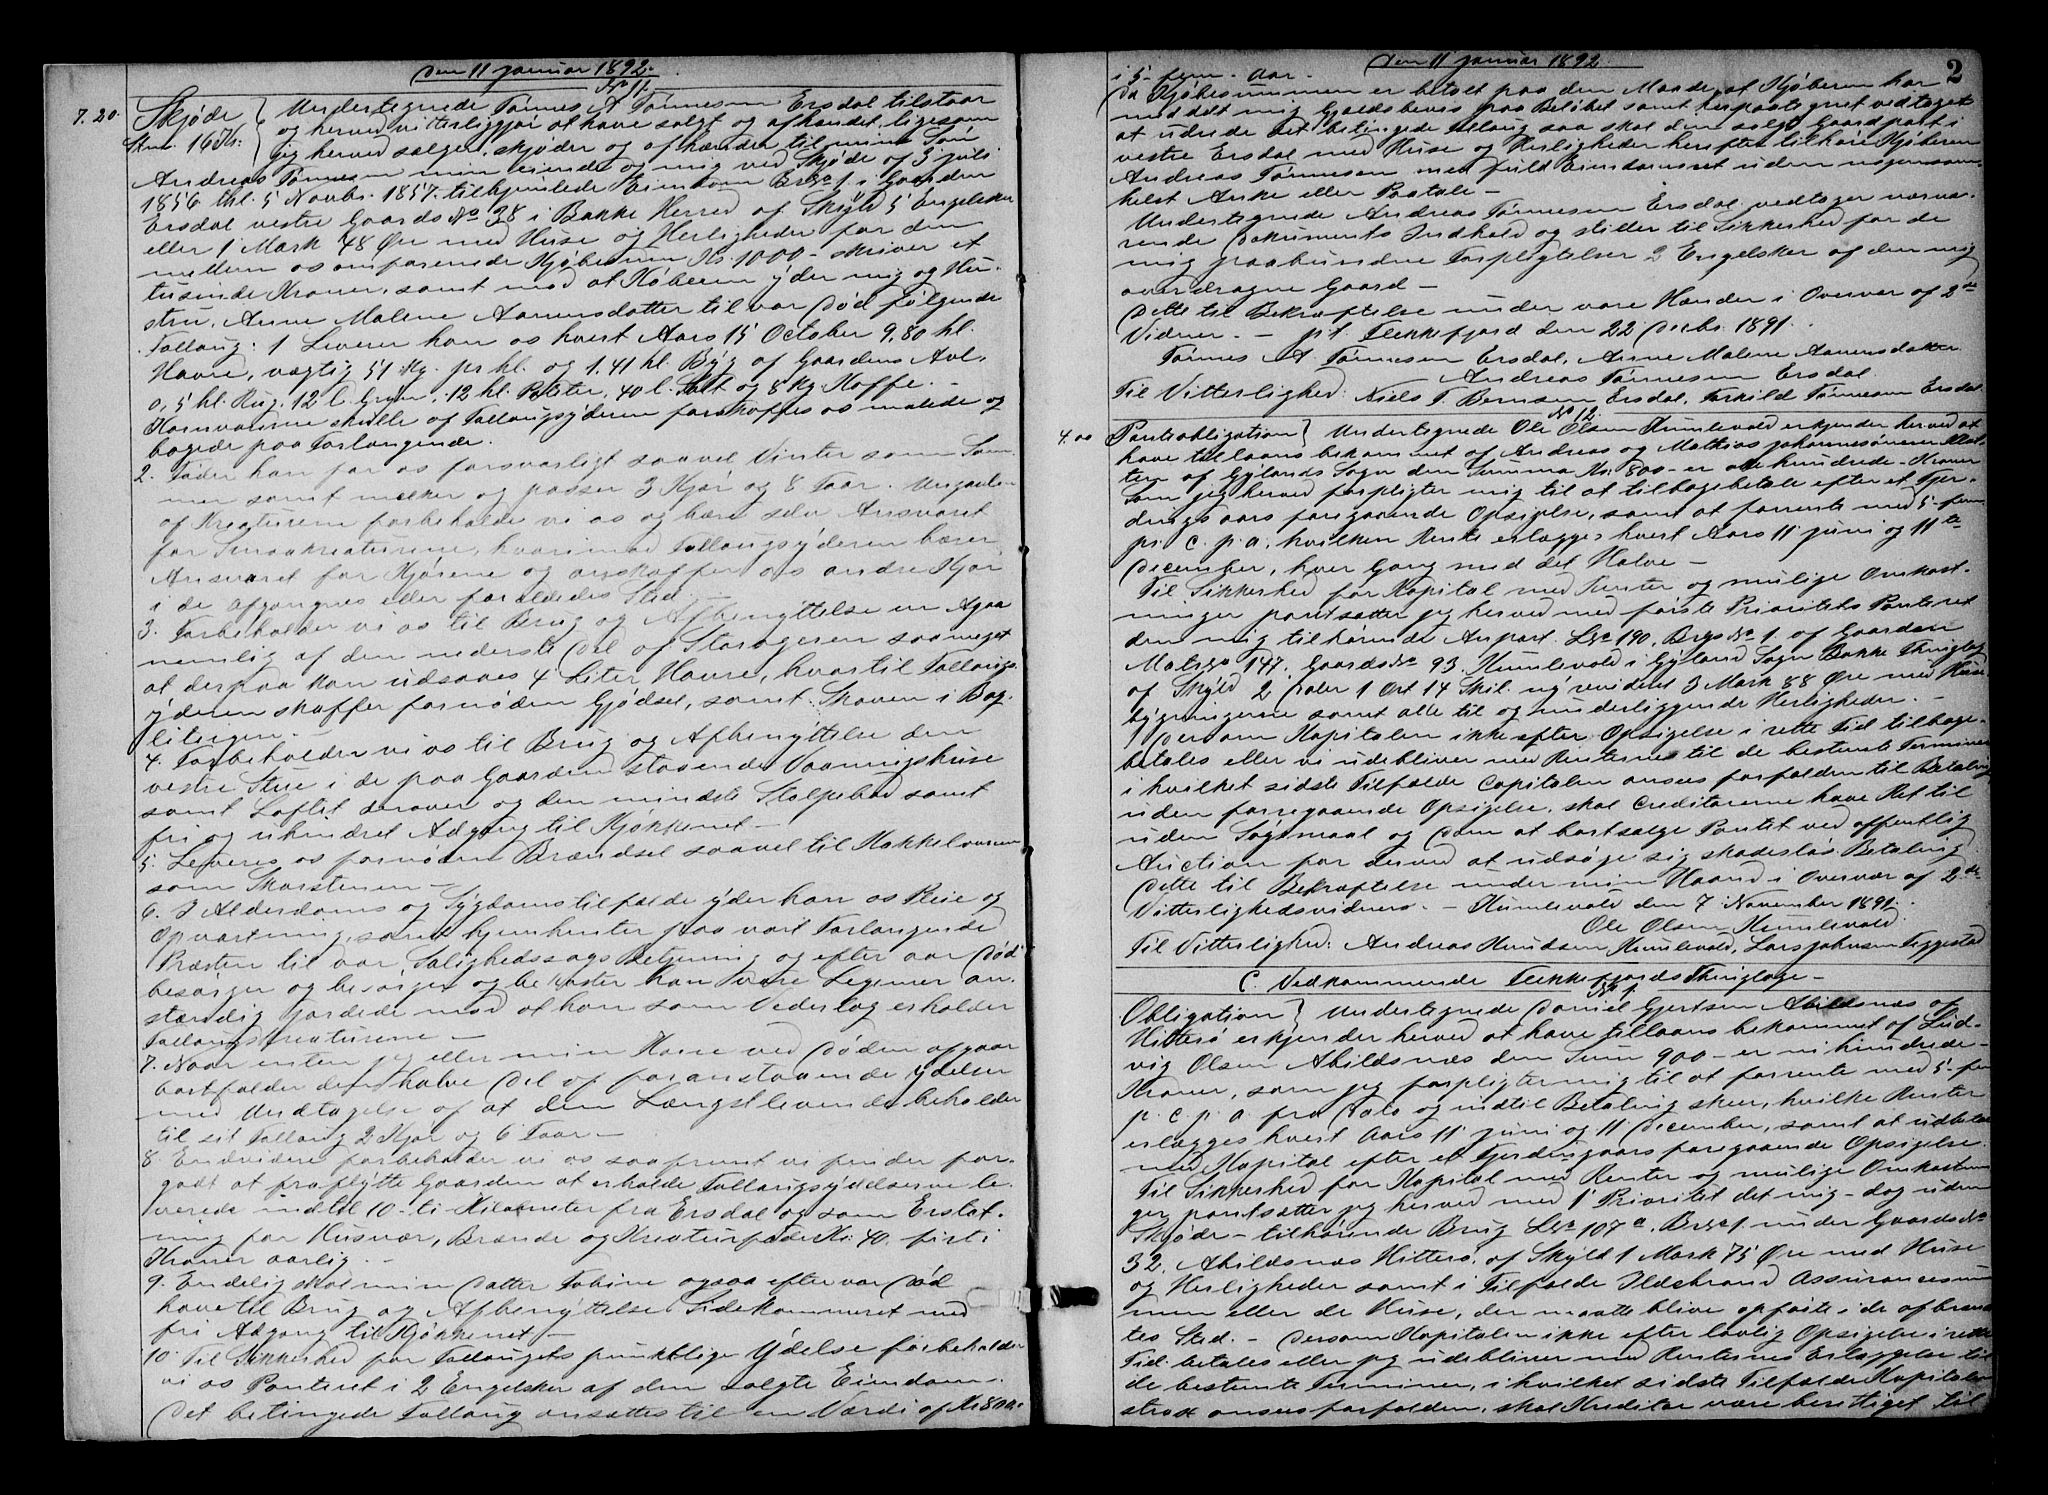 Den 11 Januar 1892.
No 11.
7.20. Skjøde Undertegnede Tønnes A Tønnesen Ersdal tilstaar
St. 16 Kr: og herved vitterliggjør at have solgt og afhændet ligesom
jeg herved sælger, skjøder og afhænder til min Søn
Andreas Tønnesen min eiende og mig ved Skjøde af 3 juli
1856 thl. 5 Novbr. 1857 tilhjemlede Eiendom Brno 1 i Gaarden
Ersdal vestre Gaards No 38 i Bakke Herred af Skyld 5 Engelsker
eller 1 Mark 48 Øre med Huse og Herligheder for den
mellem os omforenede Kjøbesum Kr. 1000 - skriver et
tusinde Kroner, samt mod at Køberen yder mig og Hu-
stru, Anne Malene Aanensdatter til vor Død følgende
Follaug: 1 Leverer han os hvert Aars 15 October 9,80 hl.
Havre, vægtig 51 Kg. pr hl. og 1.41 hl. Byg af Gaardens Avl.
0,5 hl. Rug, 12 l. Gryn, 12 hl. Poteter, 40 l. Salt og 8 Kg. Kaffe. -
Kornvarerne skulle af Follaugsyderen forskaffes os malede og
bagede paa Forlangende.
2. Føder han for os forsvarligt saavel Vinter som Som-
mer samt melker og passer 3 Kjør og 8 Faar.
af Kreaturene forbeholde vi os og bære selv Ansvaret
for Smaakreaturene, hvorimod Follaugsyderen bærer
Ansvaret for Kjørene og anskaffer os andre Kjør
i de afgangnes eller forældedes Sted. -
3. Forbeholder vi os til Brug og Afbenyttelse en Agaa
nemlig af den nederste Del af Storageren saameget
at derpaa kan udsaaes 4 Liter Havre, hvortil Follaugs-
yderen skaffer fornøden Gjødsel, samt Skoven i Bog-
litergen. -
4. Forbeholder vi os til Brug og Afbenyttelse den
vestre Stue i de paa Gaarden staaende Vaaningshuse
samt Loftet derover og den mindste Stolpebod samt
fri og uhindret Adgang til Kjøkkenet -
5. Leveres os fornøden Brændsel saavel til Kakkelovnen
som Skorstenen -
6. I Alderdoms og Sygdomstilfælde yder han os Pleie og
Opvartning, samt hjemhenter paa vort Forlangende
Præsten til vor Salighedssags Betjening og efter vor Død
besørger og besørger og bekoster han vore Legemer an-
stændig jordede mod at han som Vederlag erholder
Follaugskreaturene -
7. Naar enten jeg eller min Kone ved Døden afgaar
bortfalder den halve Del af foranstaaende Ydelser
med Undtagelse af at den Længstlevende beholder
til sit Follaug 2 Kjør og 6 Faar -
8. Endvidere forbeholder vi os saafremt vi finder for-
godt at fraflytte Gaarden at erholde Follaugsydelserne le-
verede indtil 10 - ti - Kilometer fra Ersdal og som Erstat-
ning for Husvær, Brænde og Kreaturføde Kr: 40 firti
Kroner aarlig. -
9. Endelig skal min Datter Tobine ogsaa efter vor Død
have til Brug og Afbenyttelse Sidekammeret med
fri Adgang til Kjøkkenet -
10. Til Sikkerhed for Follaugets punktlige Ydelse forbeholder
vi os Panteret i 2 Engelsker af den solgte Eiendom. -
Det betingede Follaug ansættes til en Værdi af Kr 800
Den 11 Januar 1892.
2
i 5 - fem - Aar -
Da Kjøbesummen er betalt paa den Maade, at Kjøberen har
meddelt mig Gjældsbevis paa Beløbet samt herpaategnet vedtaget
at udrede det betingede Follaug saa skal den solgte Gaardpart i
vestre Ersdal med Huse og Herligheder herefter tilhøre Kjøberen
Andreas Tønnesen med fuld Eiendomsret uden nogensom-
helst Anke eller Paatale -
Undertegnede Andreas Tønnesen Ersdal vedtager nærvæ-
rende Dokuments Indhold og stiller til Sikkerhed for de
mig paabundne Forpligtelser 2 Engelsker af den mig
overdragne Gaard -
Dette til Bekræftelse under vore Hænder i Overvær af 2de
Vidner. - pt Flekkefjord den 22 Decbr. 1891.
Tønnes A Tønnesen Ersdal, Anne Malene Aanensdatter
Andreas Tønnesen Ersdal
Til Vitterlighed: Niels T. Bernsen Ersdal, Torkild Tønnesen Ersdal
No 12.
4.00 Panteobligation Undertegnede Ole Olsen Humlevold erkjender herved at
have tillaans bekommet af Andreas og Mathias Johannesønner
af Gylands Sogn den Summa Kr. 800 - er otte hundrede - Kroner
Som jeg herved forpligter mig til at tilbagebetale efter et Fjer-
dingsaars foregaaende Opsigelse, samt at forrente med 5 - fem
pr. C. p. a, hvilken Rente erlægges hvert Aars 11 juni og 11te
December, hver Gang med det Halve -
Til Sikkerhed for Kapital med Renter og mulige Omkost-
ninger pantsætter jeg herved med første Prioritets Panteret
den mig tilhørende Anpart. Lno 190. Brgs No 1 af Gaarden
Matrno 147. Gaards No 93. Humlevold i Gyland Sogn Bakke Thinglag
af Skyld 2 Daler 1 Ort 14 Skil. ny revideret 3 Mark 88 Øre med Huse-
bygningerne samt alle til og underliggende Herligheder. -
Dersom Kapitalen ikke efter Opsigelse i rette Tid tilbage-
betales eller vi udebliver med Renternes til de bestemte Terminer
i hvilket sidste Tilfælde Capitalen ansees forfalden til Betaling
uden forregaaende Opsigelse, skal Creditorerne have Ret til
uden Søgsmaal og Dom at bortsælge Pantet ved offentlig
Auction for derved at udsøge sig skadesløs Betaling
Dette til Bekræftelse under min Haand i Overvær af 2de
Vitterlighedsvidner. - Humlevold den 7 November 1891.
Ole Olsen Humlevold
Til Vitterlighed: Andreas Knudsen Humlevold, Lars Johnsen Figgestad
C. Vedkommende Flekkefjords Thinglage -
No 1.
Obligation Undertegnede Daniel Gjertsen Abildsnæs af
Hitterø erkjender herved at have tillaans bekommet af Lud-
vig Olsen Abildsnæs den Sum 900 - er ni hundrede -
Kroner, som jeg forpligter mig til at forrente med 5 - fem
p. c. p. a. fra Dato og indtil Betaling skeer, hvilke Renter
erlægges hvert Aars 11 juni og 11 December, samt at udbetale
med Kapital efter et Fjerdingaars foregaaende Opsigelse.
Til Sikkerhed for Kapital med Renter og mulige Omkostnin-
ger pantsætter jeg herved med 1' Prioritet det mig - dog uden
Skjøde - tilhørende Brug Lno 107 a. Brno 1. under Gaards No
32. Abildsnæs Hitterø, af Skyld 1 Mark 75 Øre med Huse
og Herligheder samt i Tilfælde Ildsbrand Assurancesum-
men eller de Huse, der maatte blive opførte i de afbrænd-
tes Sted. - Dersom Kapitalen ikke efter lovlig Opsigelse i rette
Tid betales eller jeg udebliver med Renternes Erlæggelse til
de bestemte Terminer, i hvilket sidste Tilfælde Kapitalen
strax ansees forfalden, skal Kreditor være berettiget til